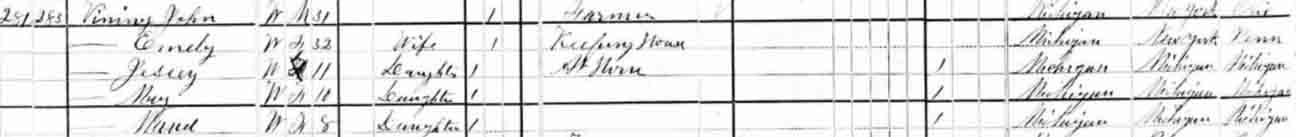 281 283 Vining John W M 31 1 Farmer Michigan New York Ohio
— Emely W F 32 Wife 1 Keeping House Michigan New York Penn
— Jessey W F 11 Daughter 1 At Home 1 Michigan Michigan Michigan
— May W F 10 Daughter 1 1 Michigan Michigan Michigan
— Maud W F 8 Daughter 1 1 Michigan Michigan Michigan